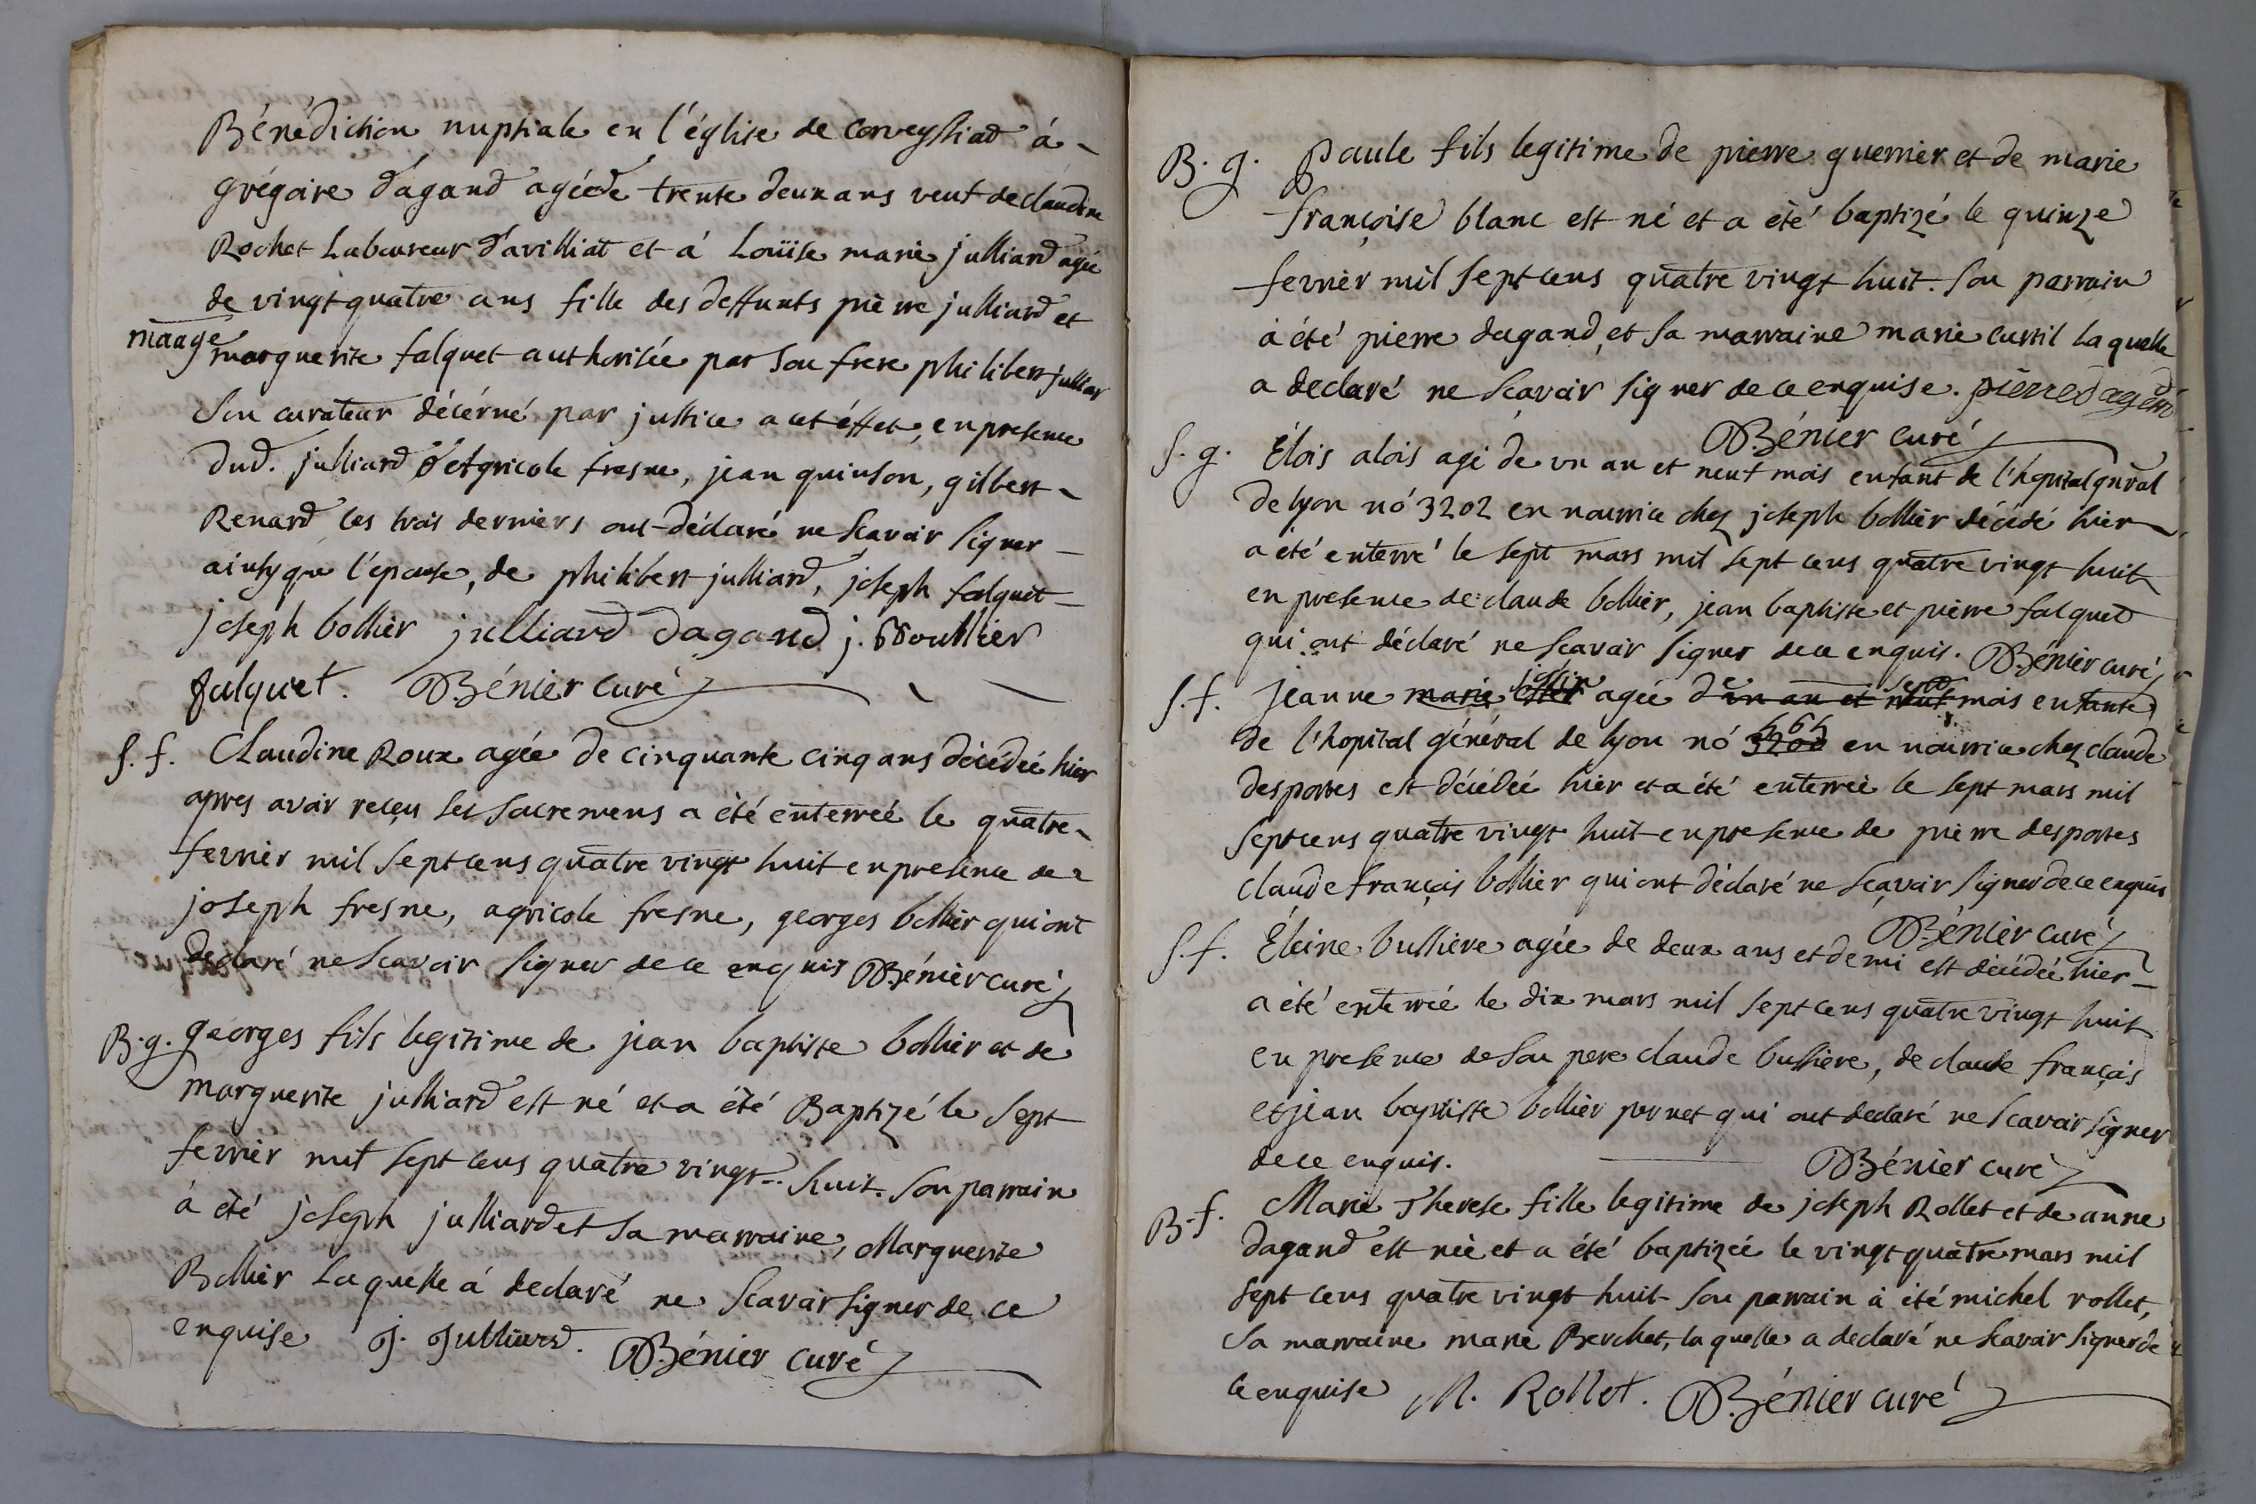 Bénédiction nuptiale en l'église de Corveyssiad á
grégoire dagand agéede trente deux ans veuf de claudine
Rochet Laboureur d'avilliat et á Loüise marie julliard agée
de vingt quatre ans fille des deffunts pierre julliard et
mãage
marguerite falquet authorisée par son frere philibert julliar
son curateur décérné par justice a cet éffet, en presence
dud. julliard d'Agricole fresne, jean quinson, gilbert
Renard les trois derniers ont déclaré ne scavoir signer
ainsy que l'epouse, de philibert julliard, joseph falquet
joseph bollier julliard dagand j. Boullier
falquet. Bénier curé
S. f. Claudine Roux agée de cinquante cinq ans décédée hier
apres avoir reçeu ses sacremens a été enterreé le quatre
fevrier mil sept cens quatre vingt huit en presence de
joseph fresne, agricole fresne, georges bollier qui ont
declaré ne scavoir signer de ce enquis Bénier curé
B. g. georges fils legitime de jean baptiste bollier et de
marguerite julliard est né et a été Baptizé le sept
fevrier mil sept cens quatre vingt huit. son parrain
á été joseph julliard et sa marraine, Marguerite
Bollier laquelle á declaré ne scavoir signer de ce
enquise J. Julliard. Bénier curé
B. g. Paule fils legitime de pierre guerrier et de marie
françoise blanc est né et a été baptizé le quinze
fevrier mil sept cens quatre vingt huit. son parrain
à été pierre dagand, et sa marraine marie curtil laquelle
a declaré ne sçavoir signer de ce enquise. pierre dagand
Bénier curé
S. g. Élois alois agé de un an et neuf mois enfant de l'hopital gnral
de lyon nó 3202 en nourrice chez joseph bollier décédé hier
a été enterré le sept mars mil sept cens quatre vingt huit
en presence de claude bollier, jean baptiste et pierre falquet
qui ont déclaré ne scavoir signer de ce enquis. Bénier curé
S. f. jeanne marie agée de un an et neuf mois enfante
de l'hopital général de lyon nó en nourrice chez claude
desportes est décédée hier et a été enterreé le sept mars mil
sept cens quatre vingt huit en presence de pierre desportes
claude françois bollier qui ont déclaré ne sçavoir signer de ce enquis
Bénier curé
S. f. Éleine bussiere agée de deux ans et demi est décédée hier
a été enterreé le dix mars mil sept cens quatre vingt huit
en presence de son pere claude bussiere, de claude françois
et jean baptiste bollier pernet qui ont declaré ne scavoir signer
de ce enquis. Bénier curé
B. f. Marie Therese fille legitime de joseph Rollet et de anne
dagand est née et a été baptizée le vingt quatre mars mil
sept cens quatre vingt huit son parrain à été michel rollet,
sa marraine marie Berchet, la quelle a declaré ne scavoir signer de
ce enquise M. Rollet. Bénier curé